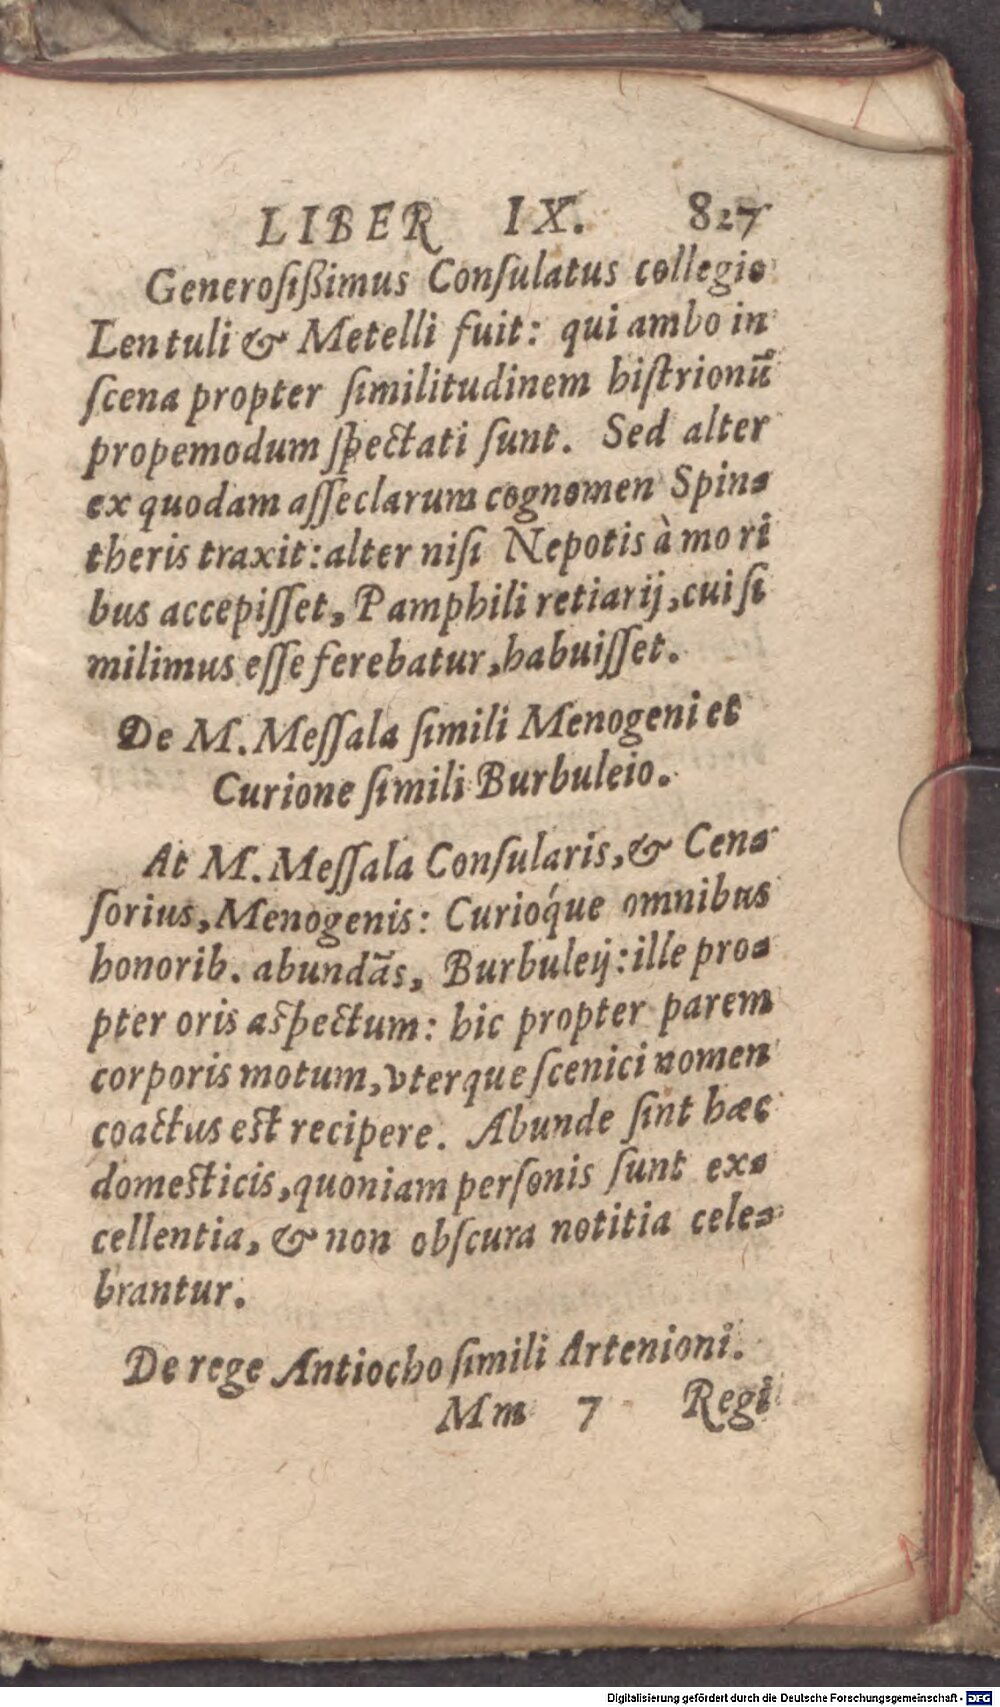 LIBER IX. 827
Generoſißimus Conſulatus collegio
Lentuli & Metelli fuit: qui ambo in
ſcena propter ſimilitudinem hiſtrionū
propemodum ſpectati ſunt. Sed alter
ex quodam aſſeclarum cognomen Spin-
theris traxit: alter niſi Nepotis à mori
bus accepiſſet, Pamphili retiarij, cui ſi
milimus eſſe ferebatur, habuiſſet.
De M. Meſſala ſimili Menogeni et
Curione ſimili Burbuleio.
At M. Meſſala Conſularis, & Cen-
ſorius, Menogenis: Curioq́ue omnibus
honorib. abundãs, Burbuleij: ille pro-
pter oris aſpectum: hic propter parem
corporis motum, vterque ſcenici nomen
coactus eſt recipere. Abunde ſint hæc
domeſticis, quoniam perſonis ſunt ex-
cellentia, & non obſcura notitia cele-
brantur.
De rege Antiocho ſimili Artenioni.
Mm 7 Regi
Digitalisierung gefördert durch die Deutsche Forschungsgemeinschaft - DFG